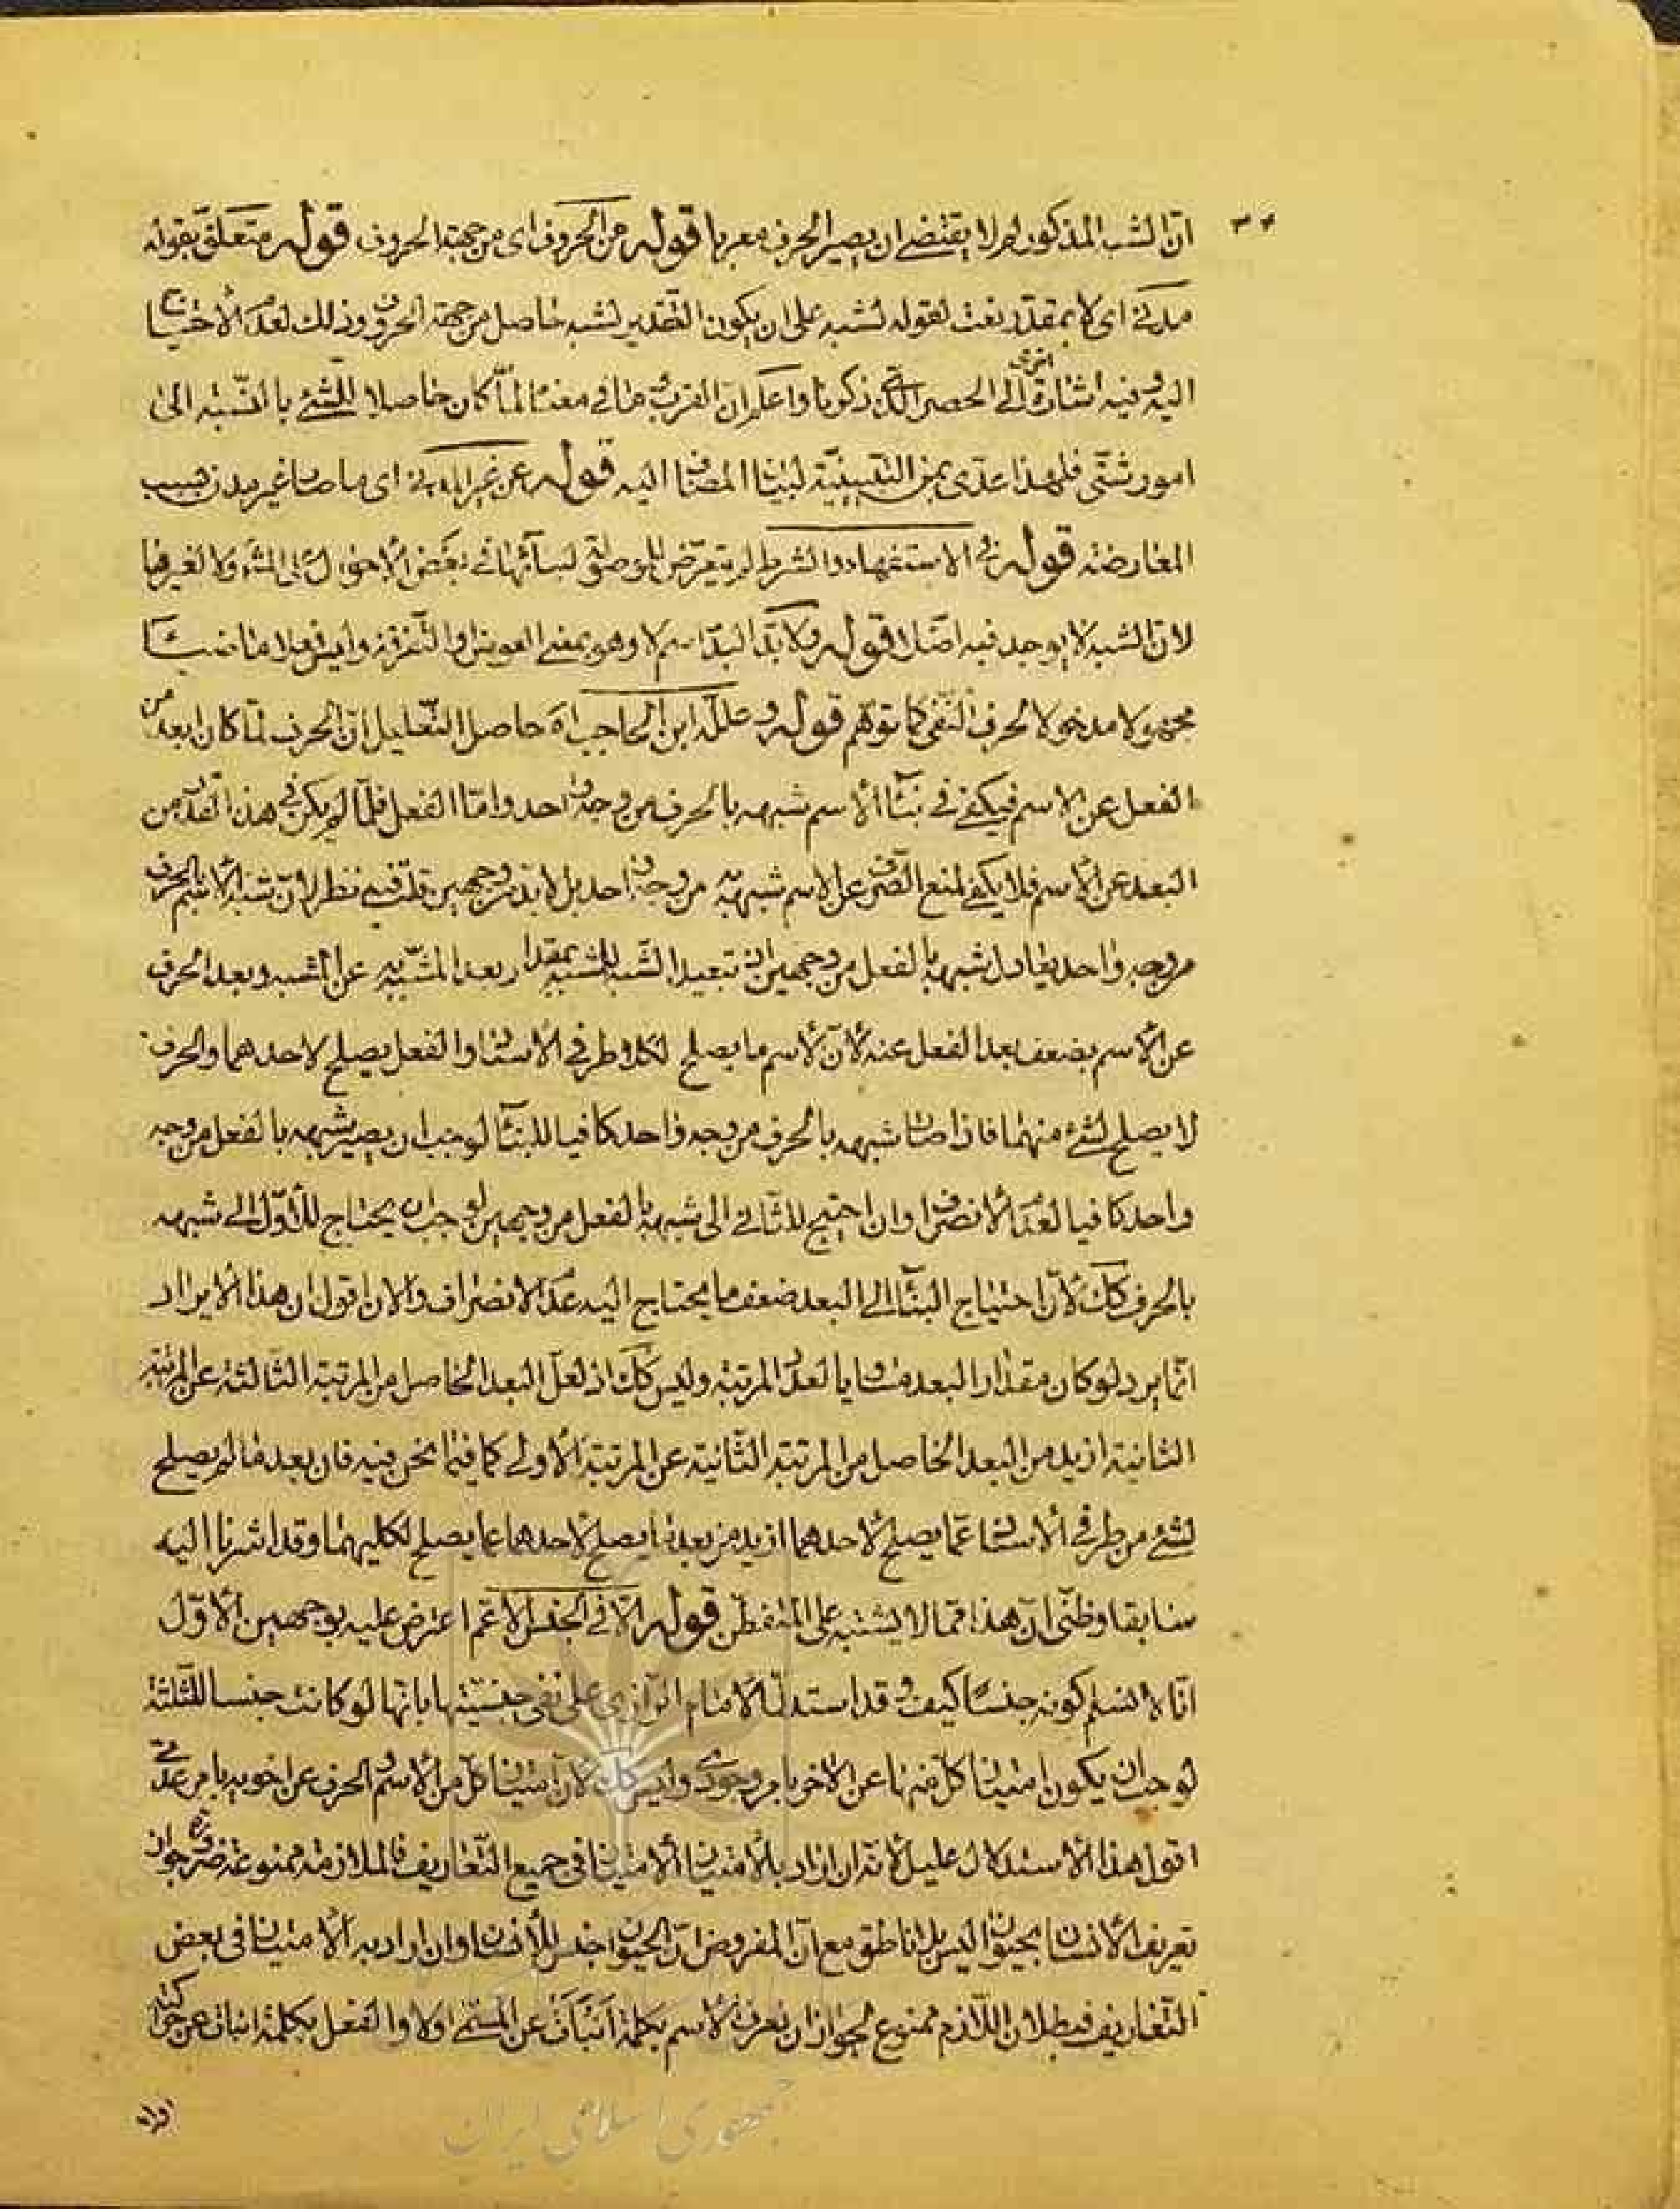 ان الشبه المذكور لا يقتضے ان يصير الحرف معربا قوله من الحروف اى من جهة الحروف قوله متعلق بقوله
مدنے اى لا بمقدر نعت لقوله لشبه على ان يكون التقدير لشبه حاصل من جهة الحروف وذلك لعدم الاحتياج
اليه وفيه اشارة اخرى الى الحصر الذى ذكرنا واعلم ان القرب وما فے معناه لما كان حاصلا للشئ بالنسبة الى
امور شتّى فلهذا عدّى بمن التبيينيّة لبيان المضاف اليه قوله عن غير اى ما صار غير مدن بسبب
المعارضة قوله فے الاستفهام والشرط لم يتعرض للموصلتى لبنائها فے بعض الاحوال
لان الشبه لا يوجد فيه اصلا قوله ولا بدّ البدّ اسم لا وهو بمعنى العوض او التفرقة وليس فعلا ماضيا
مجهولا مدخولا لحرف النفى كما توهم قوله وعلله ابن الحاجب اه حاصل التعليل ان الحرف لما كان ابعد من
الفعل عن الاسم فيكفے فے بناء الاسم شبهه بالحرف من وجه واحد واما الفعل فلما لم يكن فے هذا القدر من
البعد عن الاسم فلا يكفے لمنع الصرف عن الاسم شبهه به من وجه واحد بل لا بد من وجهين قلت فيه نظر لان شبه الاسم بالحرف
من وجه واحد يعادل شبهه بالفعل من وجهين اذ تبعيد الشبه للمشبه بمقدار بعد المشبه به عن المشبه وبعد الحرف
عن الاسم بضعف بعد الفعل عنه لان الاسم ما يصلح لكلا طرفى الاسناد والفعل يصلح لاحدهما والحرف
لا يصلح لشئ منهما فاذا صار شبهه بالحرف من وجه واحد كافيا للبناء لوجب ان يصير شبهه بالفعل من وجه
واحد كافيا لعدم الانصراف وان احتيج للثانے الى شبهه بالفعل من وجهين لوجب ان يحتاج للاول الى شبهه
بالحرف كك لان احتياج البناء الى البعد ضعف ما يحتاج اليه عدم الانصراف والان اقول ان هذا الايراد
انما يرد لو كان مقدار البعد مساويا لعدد المرتبة وليس كك اذ لعل البعد الحاصل من المرتبة الثالثة عن المرتبة
الثانية ازيد من البعد الحاصل من المرتبة الثانية عن المرتبة الاولى كما فيما نحن فيه فان بعد ما لم يصلح
لشئ من طرفى الاسناد عما يصلح لاحدهما ازيد من بعد ما يصلح لاحدهما عما يصلح لكليهما وقد اشرنا اليه
سابقا وظنّى ان هذا مما لا يشتبه على المتفطن قوله الا فى الجنس الاعم اعترض عليه بوجهين الاول
انا لا نسلم كونه جنسا كيف وقد استدل الامام الرازى على نفى جنسيتها بانها لو كانت جنسا للثلثة
لوجب ان يكون امتياز كل منها عن الاخر بامر وجودى وليس كك لان امتياز كل من الاسم والحرف عن اخويه بامر عدمى
اقول هذا الاستدلال عليل لانه ان اراد بالامتياز الامتياز فى جميع التعاريف فالملازمة ممنوعة ضرورة جواز
تعريف الانسان بحيوان ليس بلا ناطق مع ان المفروض ان الحيوان جنس للانسان وان اراد به الامتياز فى بعض
التعاريف فبطلان اللازم ممنوع لجواز ان يعرف الاسم بكلمة انبأت عن المسمى اولا والفعل بكلمة انبات عن حركة
جمهورى اسلامى ايران